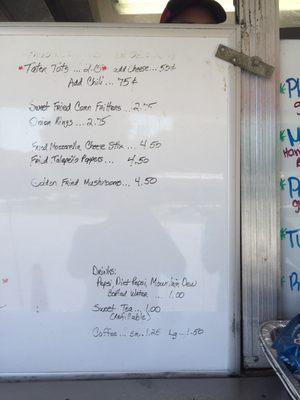 *Tater Tots ... 2.15* add Cheese .. 55¢
Add Chili ... 75¢
Sweet Fried Corn Fritters ... 2.75
Onion Rings ... 2.75
Fried Mozzarella Cheese Stix ... 4.50
Fried Jalapeño Poppers ... 4.50
Golden Fried Mushrooms ... 4.50
Drinks:
Pepsi, Diet Pepsi, Mountain Dew
Bottled Water ... 1.00
Sweet Tea ... 1.00
Coffee ... Sm. 1.25 Lg .. 1.50